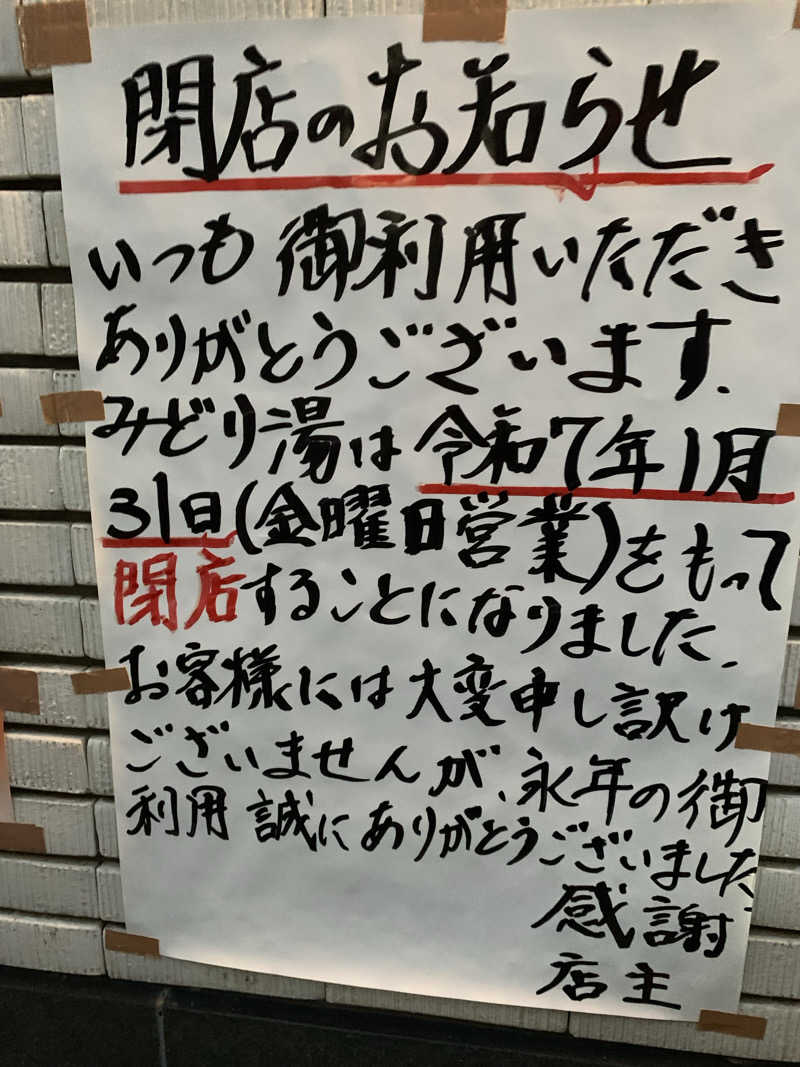 閉店のお知らせ
いつも御利用いただき
ありがとうございます.
みどり湯は令和7年1月
31日(金曜日営業)をもって
閉店することになりました.
お客様には大変申し訳け
ございませんが、永年の御
利用誠にありがとうございました.
感謝
店主